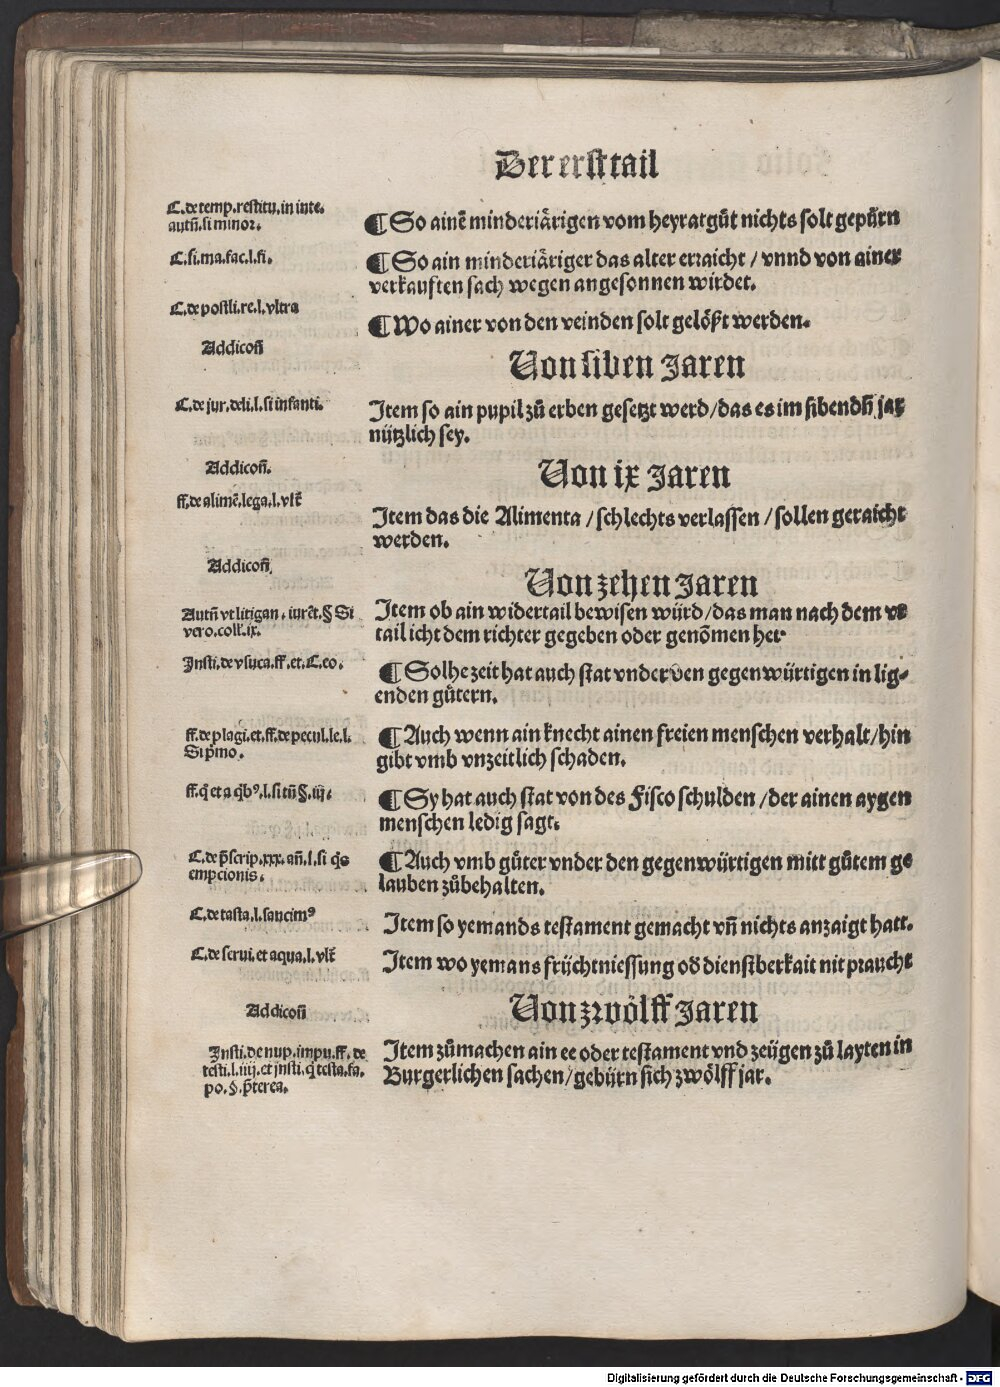 Der erst tail
C. de temp. restitu. in inte.
autñ. si minor.
¶ So ainē minderiårigen vom heyratgůt nichts solt gepürn
C. si. ma. fac. l. fi.
¶ So ain minderiåriger das alter erraicht / vnnd von ainer
verkauften sach wegen angesonnen wirdet.
C. de postli. re. l. vltra
¶ Wo ainer von den veinden solt gelößt werden.
Addicoñ
Von siben Jaren
C. de jur. deli. l. si infanti.
Item so ain pupil zů erben gesetzt werd / das es im sibendñ jar
nützlich sey.
Addicoñ.
Von ix Jaren
ff. de alimē. lega. l. vlt̄
Item das die Alimenta / schlechts verlassen / sollen geraicht
werden.
Addicoñ
Von zehen Jaren
Autñ vt litigan. iurēt. § Si
vero. coll. ix.
Item ob ain widertail bewisen würd / das man nach dem
tail icht dem richter gegeben oder genōmen het
Insti. de vsuca. ff. et. C. eo.
¶ Solhe zeit hat auch stat vnder den gegenwürtigen in lig-
enden gütern.
ff. de plagi. et. ff. de pecul. le. l.
Si p̄mo.
¶ Auch wenn ain knecht ainen freien menschen verhalt / hin
gibt vmb vnzeitlich schaden.
ff. q̄ et a q̄bꝰ. l. si tñ §. iij.
¶ Sy hat auch stat von des Fisco schulden / der ainen aygen
menschen ledig sagt.
C. de p̄scrip. xxx. añ. l. si q̄s
empcionis.
¶ Auch vmb gůter vnder den gegenwürtigen mitt gůtem ge
lauben zůbehalten.
C. de tasta. l. sancimꝰ
Item so yemands testament gemacht vñ nichts anzaigt hatt.
C. de serui. et aqua. l. vlt̄
Item wo yemans früchtniessung od dienstberkait nit praucht
Addicoñ
Von zwölff Jaren
Insti. de nup. impu. ff. de
testi. l. iiij. et insti. q̄ testa. fa.
po. §. p̄terea.
Item zůmachen ain ee oder testament vnd zeügen zů layten in
Burgerlichen sachen / gebürn sich zwölff jar.
Digitalisierung gefördert durch die Deutsche Forschungsgemeinschaft - DFG